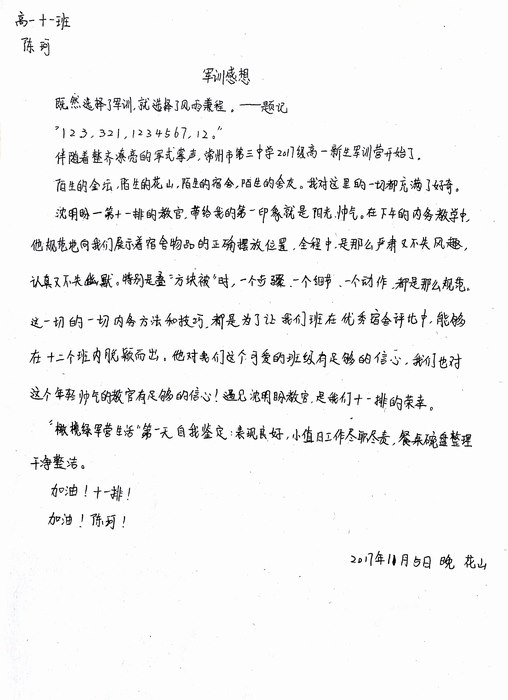 高一十一班
陈珂
军训感想
既然选择了军训,就选择了风雨兼程。——题记
"123,321,1234567,12。"
伴随着整齐嘹亮的军式掌声,常州市第三中学2017级高一新生军训营开始了。
陌生的金坛,陌生的花山,陌生的宿舍,陌生的舍友。我对这里的一切都充满了好奇。
沈明盼—第十一排的教官,带给我的第一印象就是阳光、帅气。在下午的内务教学中,
他规范地向我们展示着宿舍物品的正确摆放位置,全程中,是那么严肃又不失风趣,
认真又不失幽默。特别是叠"方块被"时,一个步骤、一个细节、一个动作,都是那么规范。
这一切的一切内务方法和技巧,都是为了让我们班在优秀宿舍评比中,能够
在十二个班内脱颖而出。他对我们这个可爱的班级有足够的信心,我们也对
这个年轻帅气的教官有足够的信心!遇见沈明盼教官,是我们十一排的荣幸。
"橄榄绿军营生活"第一天自我鉴定:表现良好,小值日工作尽职尽责,餐桌碗盘整理
干净整洁。
加油!十一排!
加油!陈珂!
2017年11月5日 晚 花山